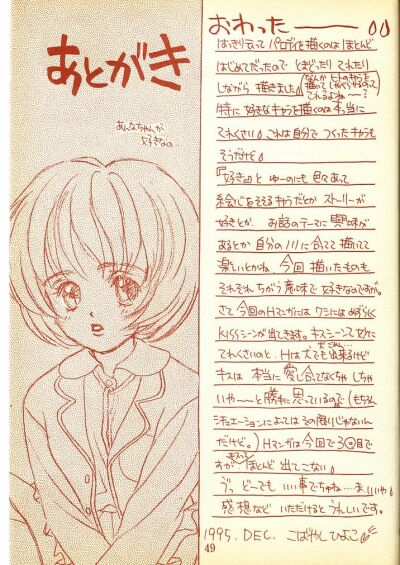 あとがき
あんなちゃんが
好きなの
おわったーー
はっきり云って パロディを描くのは ほとんど
はじめてだったので とまどったり てれたり
しながら 描きました。
なんか ヒトのキャラを
描いて
てれるよね〜?
特に 好きなキャラを描くのは 本当に
てれくさい。これは自分で つくったキャラも
そうだけど。
『好き』と ゆーのにも 色々あって
絵心をそそるキャラだとか ストーリーが
好きとか、お話のテーマに 興味が
あるとか 自分のノリに合ってて 描いてて
楽しいとかね。今回 描いたものも
それぞれ ちがう意味で 好きなのですが。
さて 今回のHマンガには ワシには めずらしく
KISSシーンが出てきます。キスシーンって 妙に
てれくさいのと、Hは犬でも出来るけど
犬ごめん…
キスは 本当に 愛し合ってなくちゃ しちゃ
いや〜〜と 勝手に 思っているので(もちろん
シチュエーションによっては その限りじゃないん
だけど。)Hマンガは今回で 3回目で
すが ほとんど 出てこない。
キスって
うっ どーでも いい事でちゃね…ま、いいや。
感想など いただけると うれしいです。
1995. DEC. こばやし ひよこ
49